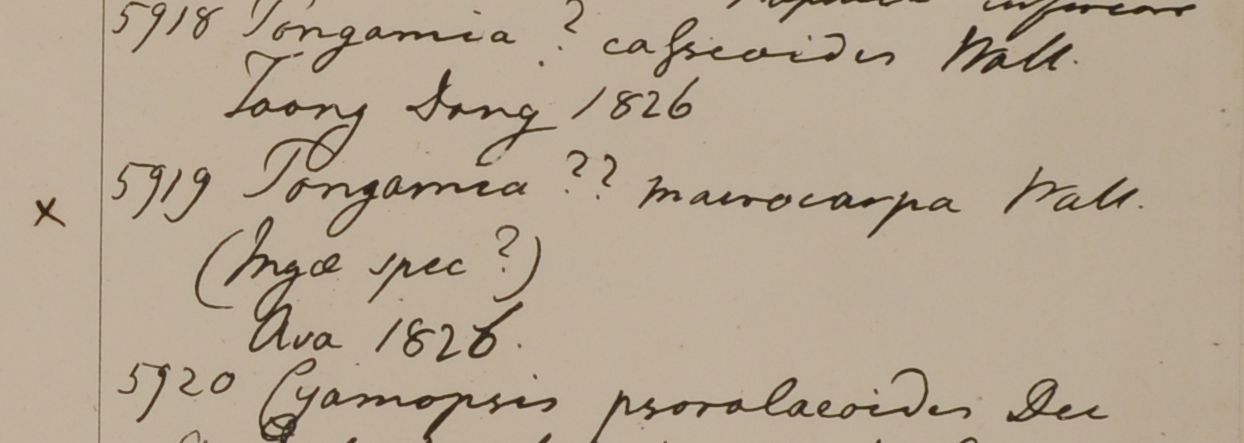 5918 Pongamia ? cassioides Wall.
Taong Dong 1826
5919 Pongamia ?? macrocarpa Wall.
x
(Ingæ spec ?)
Ava 1826.
5920 Cyamopsis psoralaeoides Dec